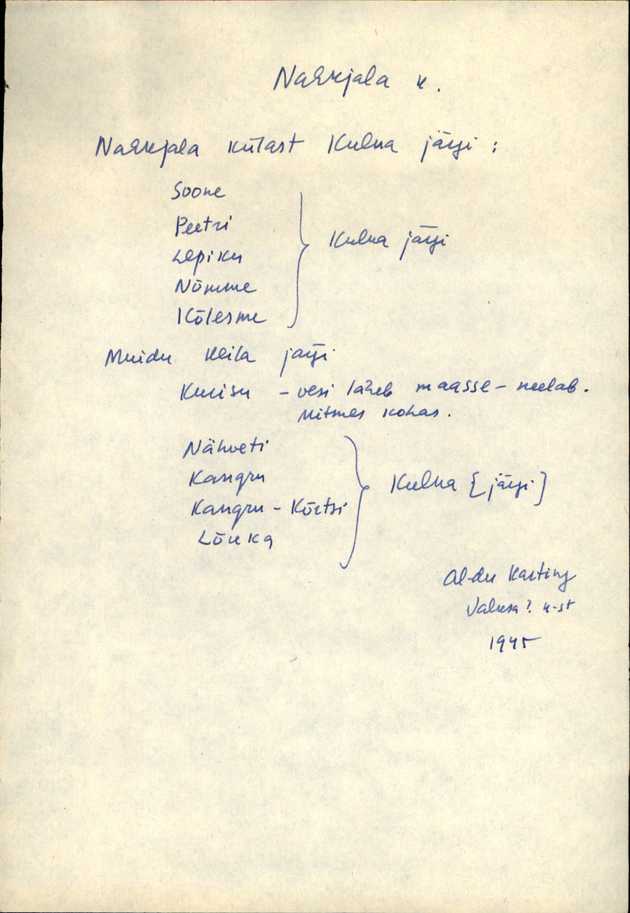 Nahkjala k.
Nahkjala külast Kulna järgi :
Soone
Peetri
Lepiku
Nõmme
Kõlesme
Muidu Keila järgi
Kurisu - vesi läheb maasse - neelab.
Mitmes kohas.
Nähveti
Kangru
Kangru - Kõrtsi
Lõuka
Kulna [järgi]
Kulna järgi
Valusa ? k-st
1945